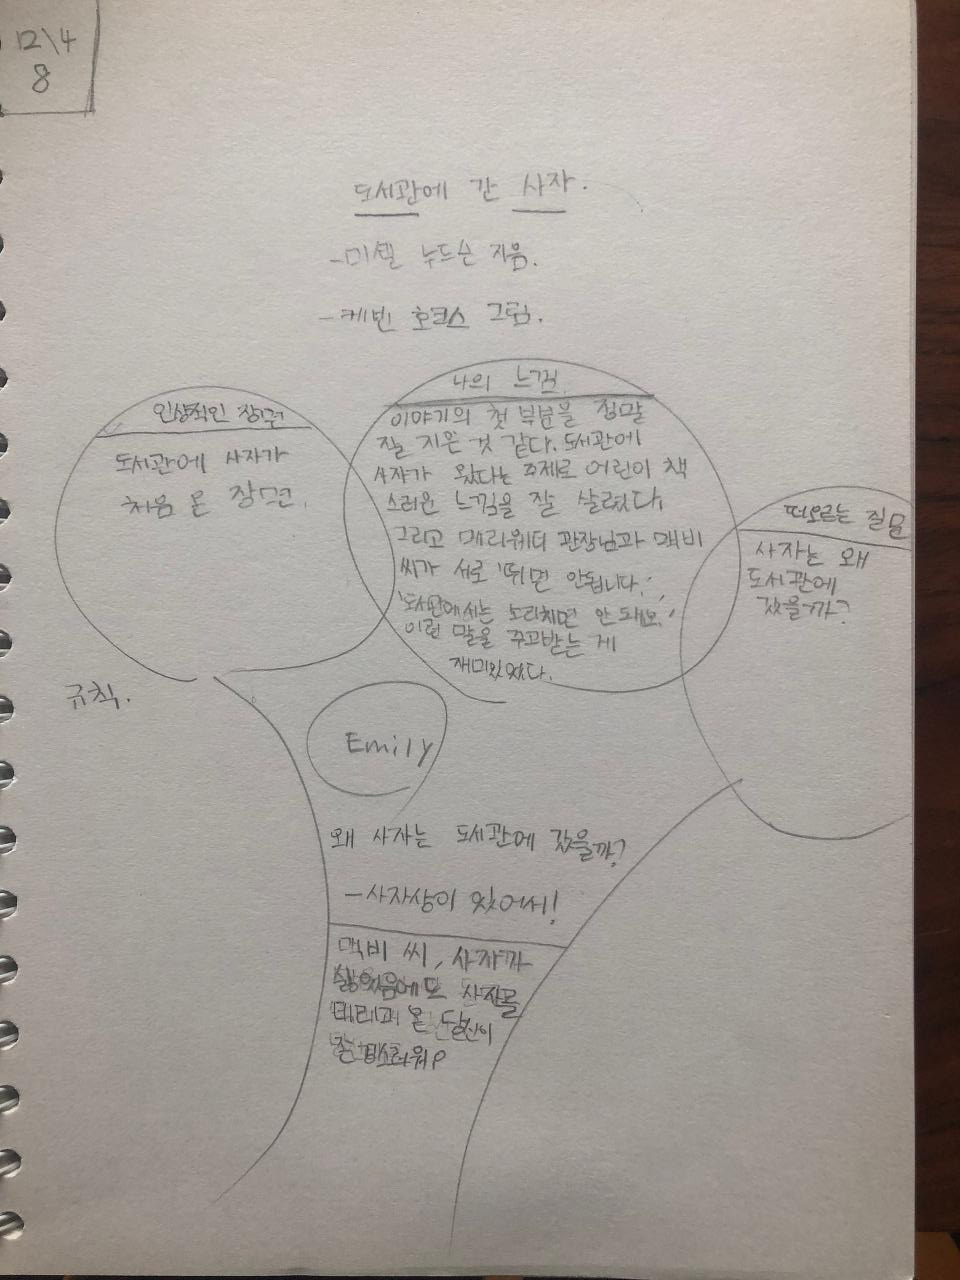 12\4
8
도서관에 간 사자.
-미셸 누드슨 지음.
-케빈 호크스 그림.
인상적인 장면
도서관에 사자가
처음 온 장면.
나의 느낌
이야기의 첫 부분을 정말
잘 지은 것 같다. 도서관에
사자가 왔다는 주제로 어린이 책
스러운 느낌을 잘 살렸다.
그리고 메리웨더 관장님과 맥비
씨가 서로 '뛰면 안됩니다.',
'도서관에서는 소리치면 안 돼요.'
이런 말을 주고받는 게
재미있었다.
떠오르는 질문
사자는 왜
도서관에
갔을까?
규칙.
Emily
왜 사자는 도서관에 갔을까?
-사자상이 있어서!
맥비 씨, 사자가
데리고 온 당신이